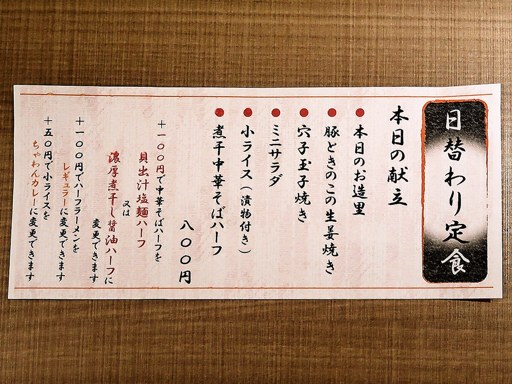 日替わり定食
本日の献立
●本日のお造里
●豚ときのこの生姜焼き
●穴子玉子焼き
●ミニサラダ
●小ライス（漬物付き）
●煮干中華そばハーフ
八〇〇円
＋一〇〇円で中華そばハーフを
貝出汁塩麺ハーフ
又は
濃厚煮干し醤油ハーフに
変更できます
＋一〇〇円でハーフラーメンを
レギュラーに変更できます
＋五〇円で小ライスを
ちゃわんカレーに変更できます